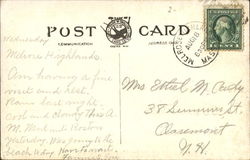 POST CARD
COMMUNICATION
ADDRESS ONLY
MELROSE
MASS
AUG 8
Wednesday
Melrose Highlands.
Am having a fine
visit and rest.
Rains last night
cool and cloudy this A.
M. Went to Boston
yesterday. Was going to the
beach to day
Mrs Ethel M.
38 Summer St.
Claremont
N. H.